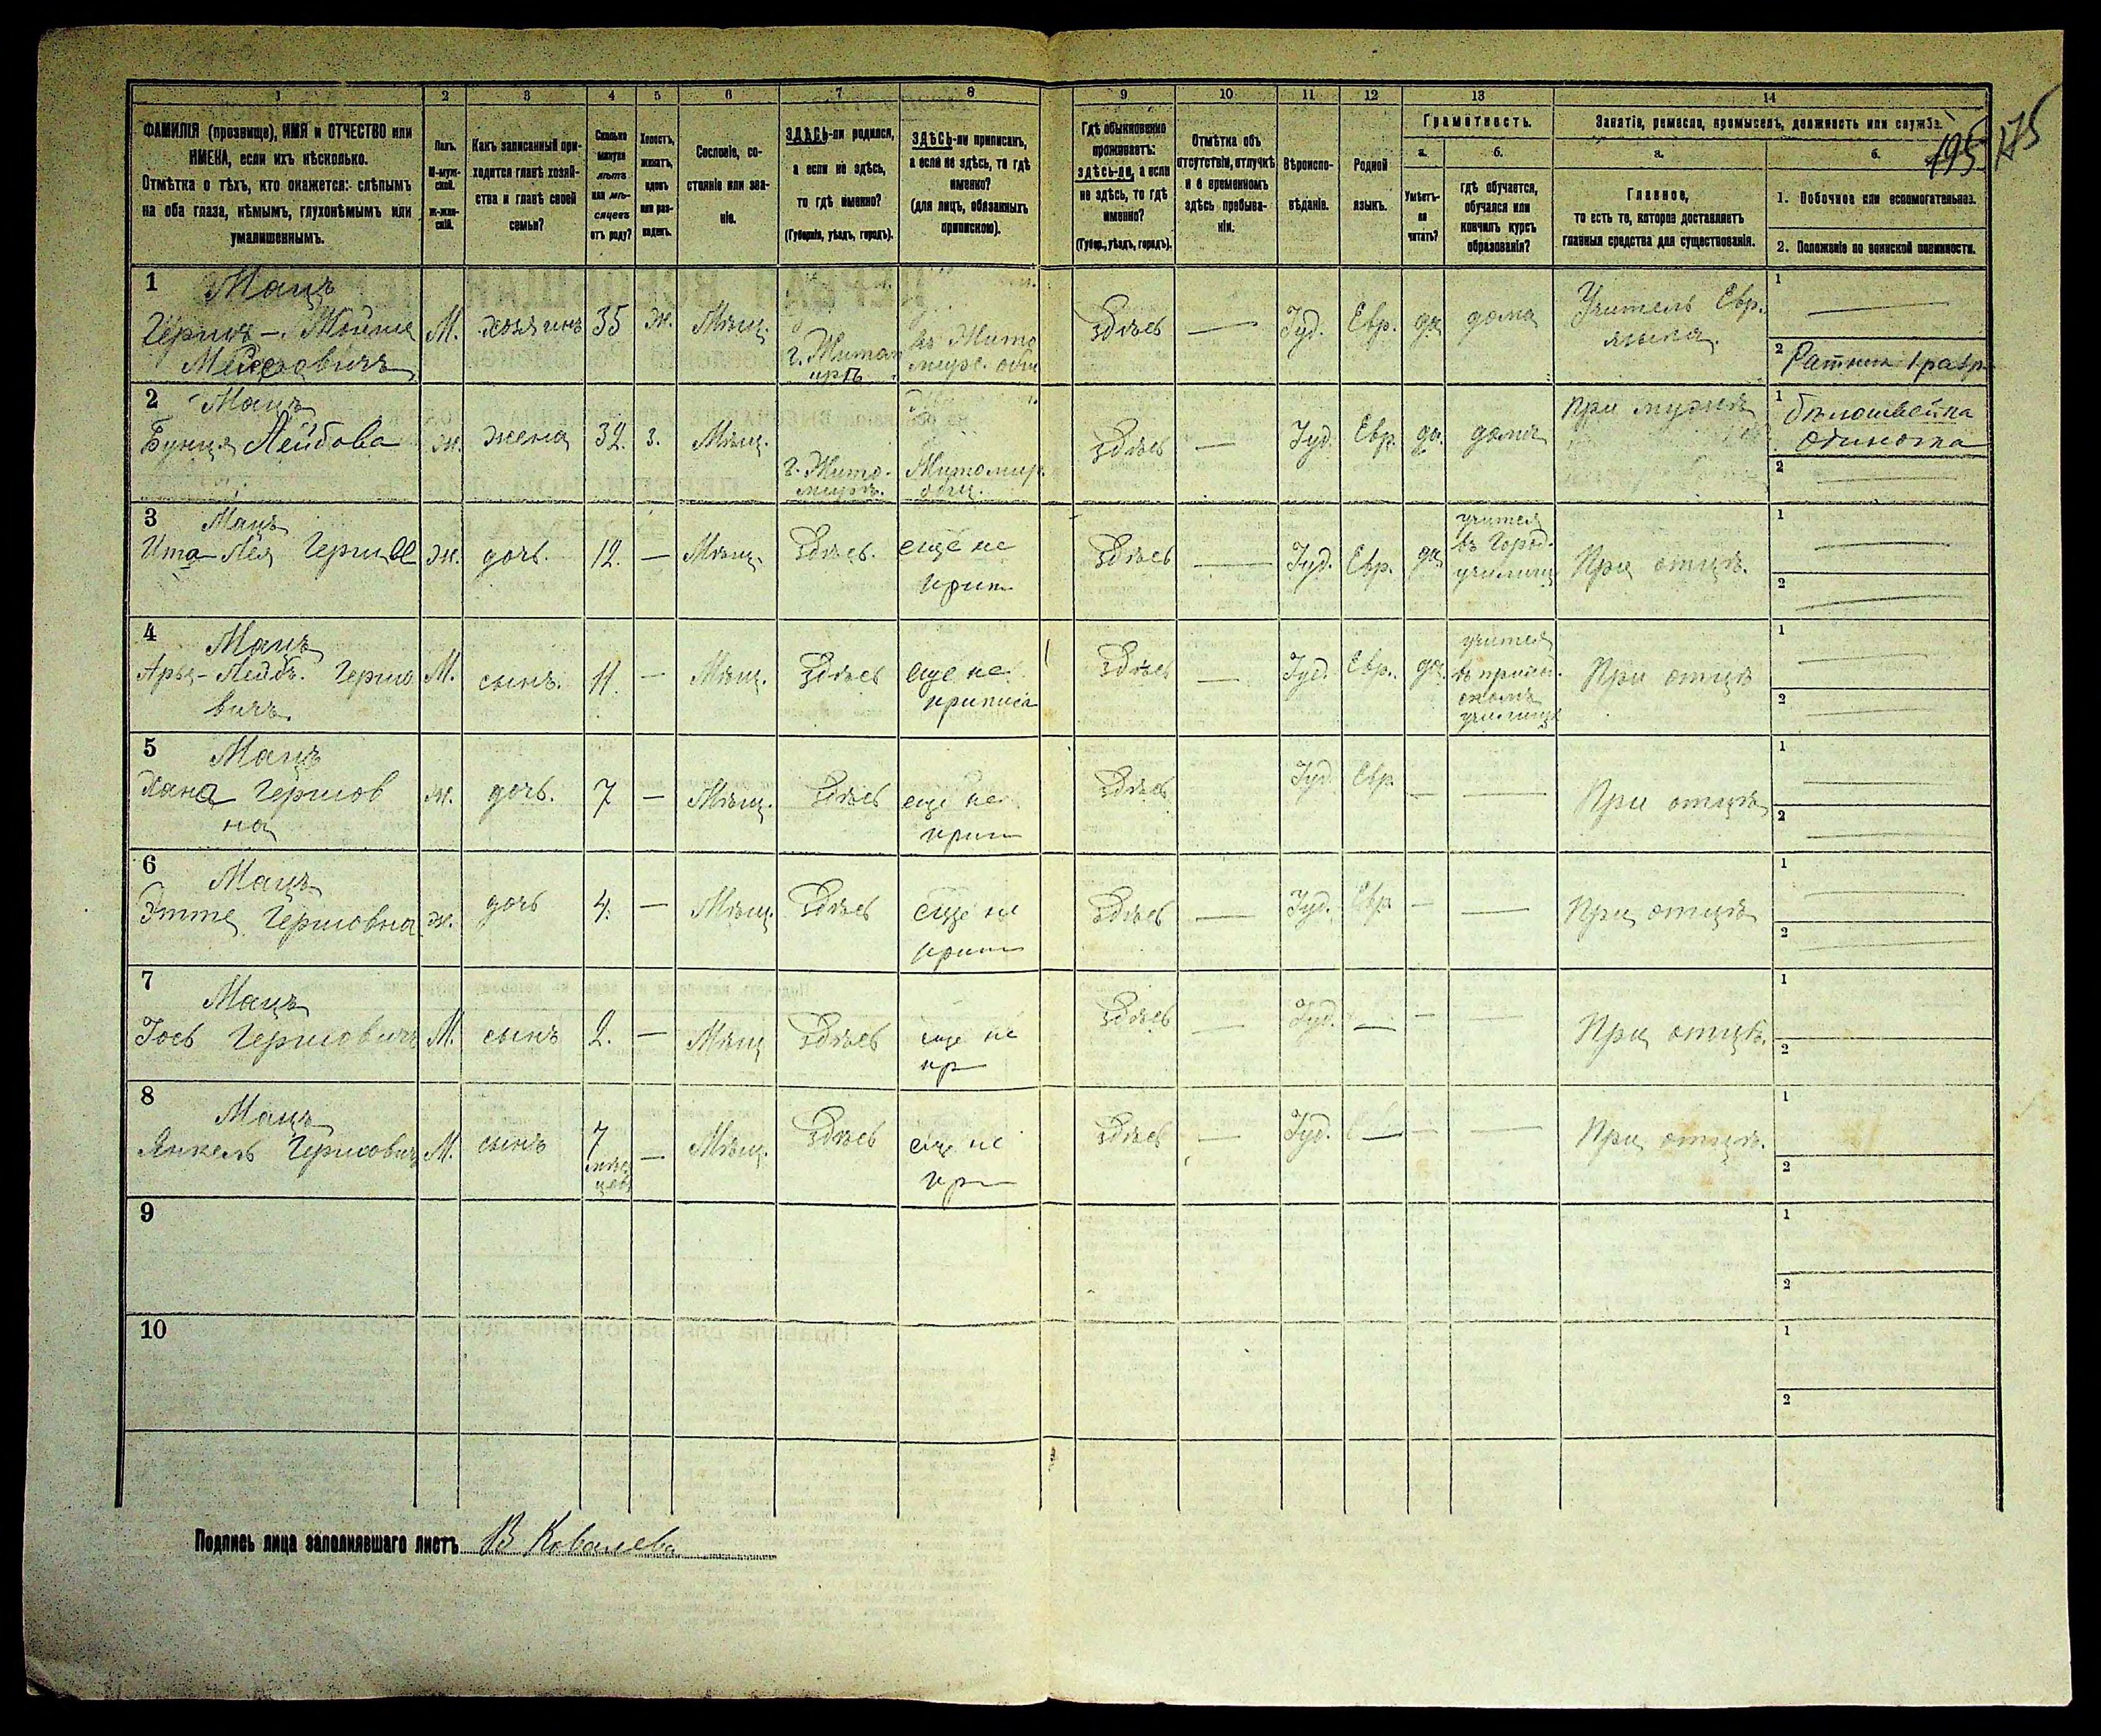 195 175
1 2 3 4 5 6 7 8 9 10 11 12 13 14
ФАМИЛІЯ (прозвище), ИМЯ и ОТЧЕСТВО или
ИМЕНА, если ихъ нѣсколько.
Отмѣтка о тѣхъ, кто окажется: слѣпымъ
на оба глаза, нѣмымъ, глухонѣмымъ или
умалишеннымъ.
Полъ.
М-муж-
ской.
Ж-жен-
скій.
Какъ записанный при-
ходится главѣ хозяй-
ства и главѣ своей
семьи?
Сколько
минуло
лѣтъ
или мѣ-
сяцевъ
отъ роду?
Холостъ,
женатъ,
вдовъ
или раз-
веденъ.
Сословіе, со-
стояніе или зва-
ніе.
ЗДѢСЬ-ли родился,
а если не здѣсь,
то гдѣ именно?
(Губернія, уѣздъ, городъ).
ЗДѢСЬ-ли приписанъ,
а если не здѣсь, то гдѣ
именно?
(для лицъ, обязанныхъ
припискою).
Гдѣ обыкновенно
проживаетъ:
здѣсь-ли, а если
не здѣсь, то гдѣ
именно?
(Губер., уѣздъ, городъ).
Отмѣтка объ
отсутствіи, отлучкѣ
и о временномъ
здѣсь пребыва-
ніи.
Вѣроиспо-
вѣданіе.
Родной
языкъ.
Грамотность.
а.
Умѣетъ-
ли
читать?
б.
гдѣ обучается,
обучался или
кончилъ курсъ
образованія?
Занятіе, ремесло, промыселъ, должность или служба.
а.
Главное,
то есть то, которое доставляетъ
главныя средства для существованія.
б.
1. Побочное или вспомогательное.
2. Положеніе по воинской повинности.
1 Мацъ
Гершъ-Мойше
М. хозяинъ 35 ж. Мѣщ. г. Житомиръ въ Житомирс. общ. Здѣсь — Іуд. Евр. да дома Учитель Евр. языка.
1 —
2 Ратник 1 разр
2 Мацъ
Бунця Лейбова ж. жена 32. з. Мѣщ. г. Житомиръ. Житомир. общ. Здѣсь — Іуд. Евр. да. дома при мужѣ
1 бѣлошвейка
одиночка
2 —
3 Мацъ
Ита-Лея Герш ж. дочь. 12. — Мѣщ. Здѣсь. еще не прип Здѣсь — Іуд. Евр. да учится въ Город. училищ При отцѣ.
1 —
2 —
4 Мацъ
Арья-Лейбъ Гершовичъ М. сынъ. 11. — Мѣщ. Здѣсь еще не приписа Здѣсь — Іуд. Евр. да. учится училищѣ При отцѣ
1 —
2 —
5 Мацъ
Хана Гершовна ж. дочь. 7 — Мѣщ. Здѣсь еще не прип Здѣсь Іуд. Евр. — — При отцѣ
1 —
2 —
6 Мацъ
Этте Гершовна ж. дочь 4. — Мѣщ. Здѣсь еще не прип Здѣсь — Іуд. Евр — — При отцѣ
1 —
2 —
7 Мацъ
Іось Гершовичъ М. сынъ 2. — Мѣщ Здѣсь еще не пр Здѣсь — Іуд. — — — При отцѣ.
1
2
8 Мацъ
Янкель Гершовичъ М. сынъ 7 мѣсяцевъ — Мѣщ. Здѣсь еще не пр Здѣсь — Іуд. — — — При отцѣ.
1
2
9
1
2
10
1
2
Подпись лица заполнявшаго листъ В Ковалева